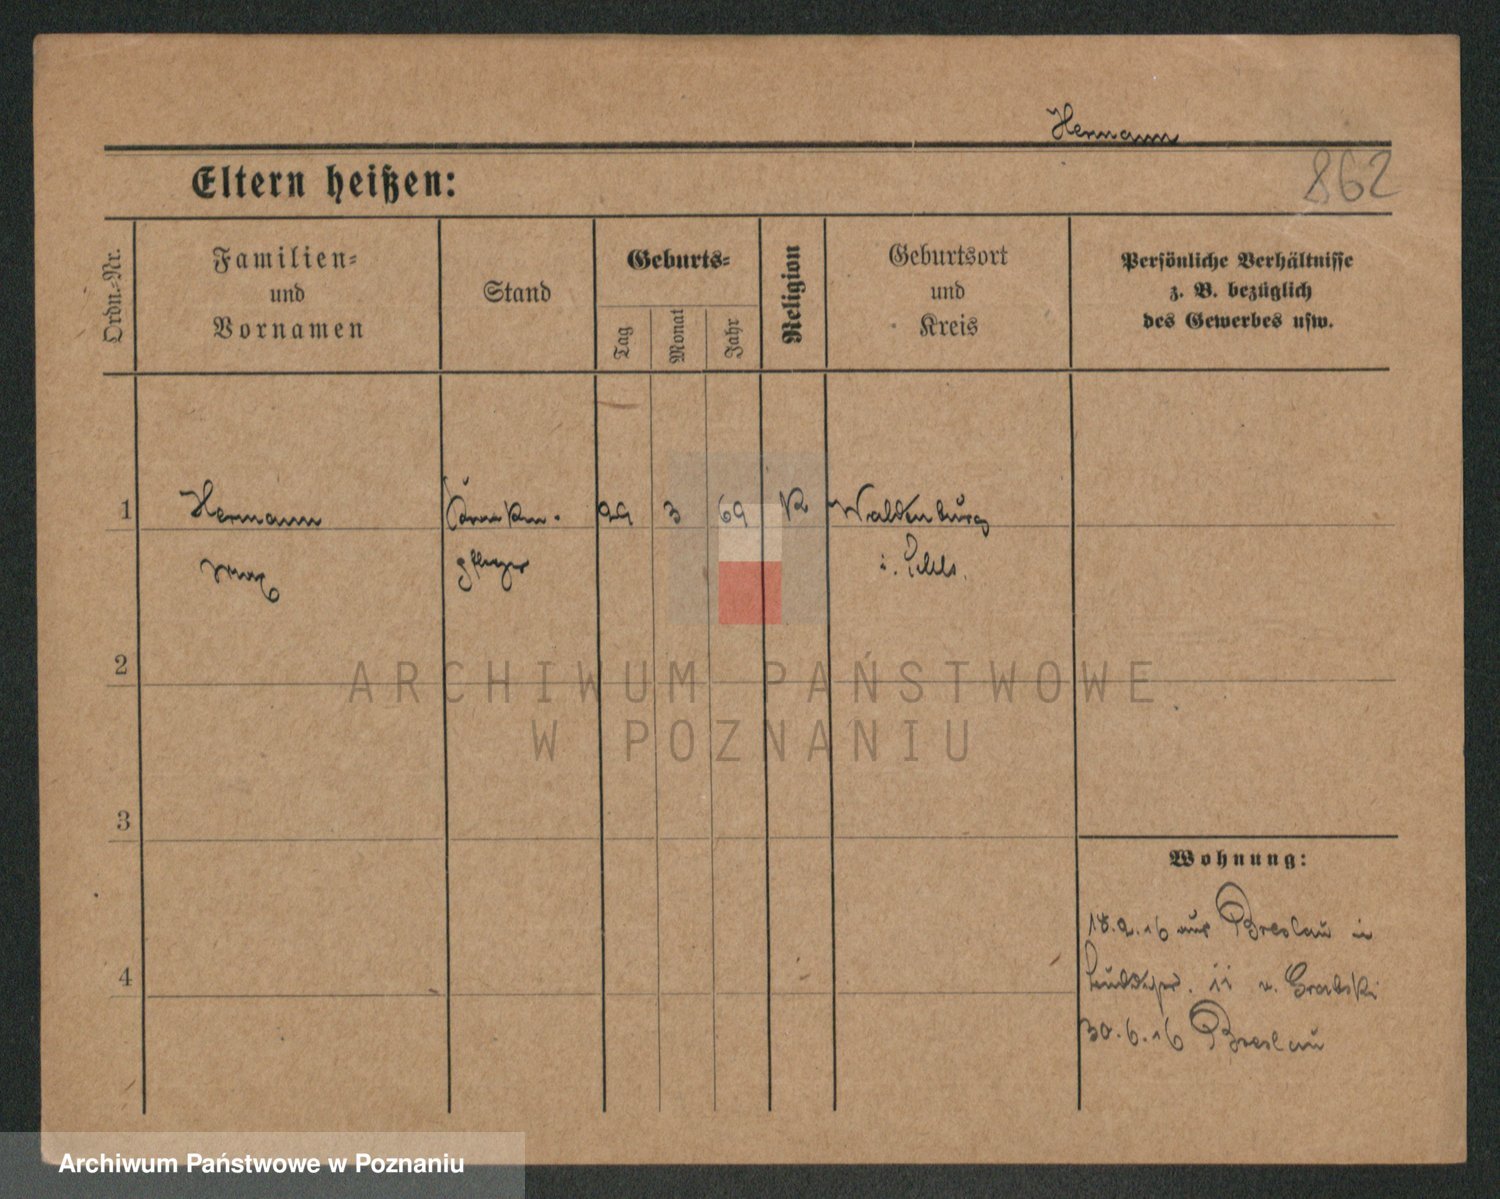 Hermann
862
Eltern heißen:
Ordn.-Nr.
Familien-
und
Vornamen
Stand
Geburts-
Tag
Monat
Jahr
Religion
Geburtsort
und
Kreis
Persönliche Verhältnisse
z. B. bezüglich
des Gewerbes usw.
1
Hermann
Max
Kranken-
pfleger
29
3
69
K
Waldenburg
i. Schls.
2
ARCHIWUM PAŃSTWOWE
W POZNANIU
3
Wohnung:
18.2.16 aus Breslau in
11 v. Grabski
4
30.6.16 Breslau
Archiwum Państwowe w Poznaniu